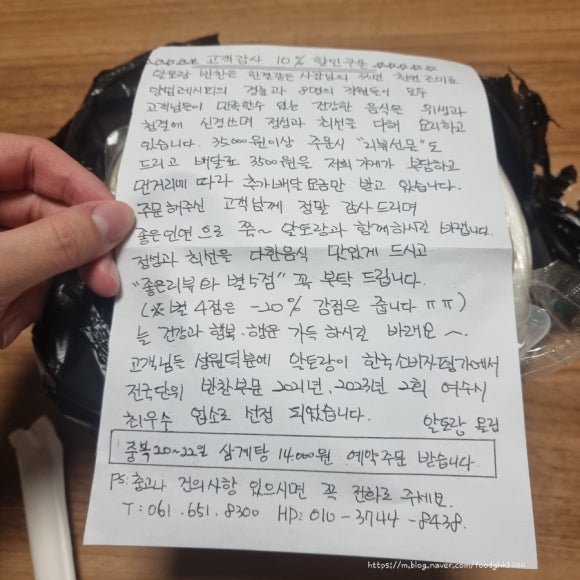 고객감사 10% 할인쿠폰
알토랑 반찬은 한정식집 사장님의 33년 천연 조미료
양념레시피의 경험과 8명의 직원들이 모두
고객님들이 만족할수 있는 건강한 음식은 위생과
청결에 신경쓰며 정성과 최선을 다해 요리하고
있습니다. 35000원이상 주문시 "리뷰선물"도
드리고 배달료 3500원을 저희 가게가 부담하고
먼거리에 따라 추가배달 요금만 받고 있습니다.
주문해주신 고객님께 정말 감사드리며
좋은인연으로 쭉~ 알토랑과 함께하시길 바랍니다.
정성과 최선을 다한음식 맛있게 드시고
"좋은리뷰와 별5점" 꼭 부탁 드립니다.
(※별 4점은 -20% 감점을 줍니다 ㅠㅠ)
늘 건강과 행복·행운 가득하시길 바래요~.
고객님들 성원덕분에 알토랑이 한국소비자평가에서
전국단위 반찬부문 2021년, 2023년 2회 여수시
최우수 업소로 선정 되었습니다. 알토랑 올림
중복 20~22일 삼계탕 14,000원 예약주문 받습니다.
PS: 충고나 건의사항 있으시면 꼭 전화로 주세요.
T: 061.651.8300 HP: 010-3744-8438.
https://m.blog.naver.com/foodyhk3004